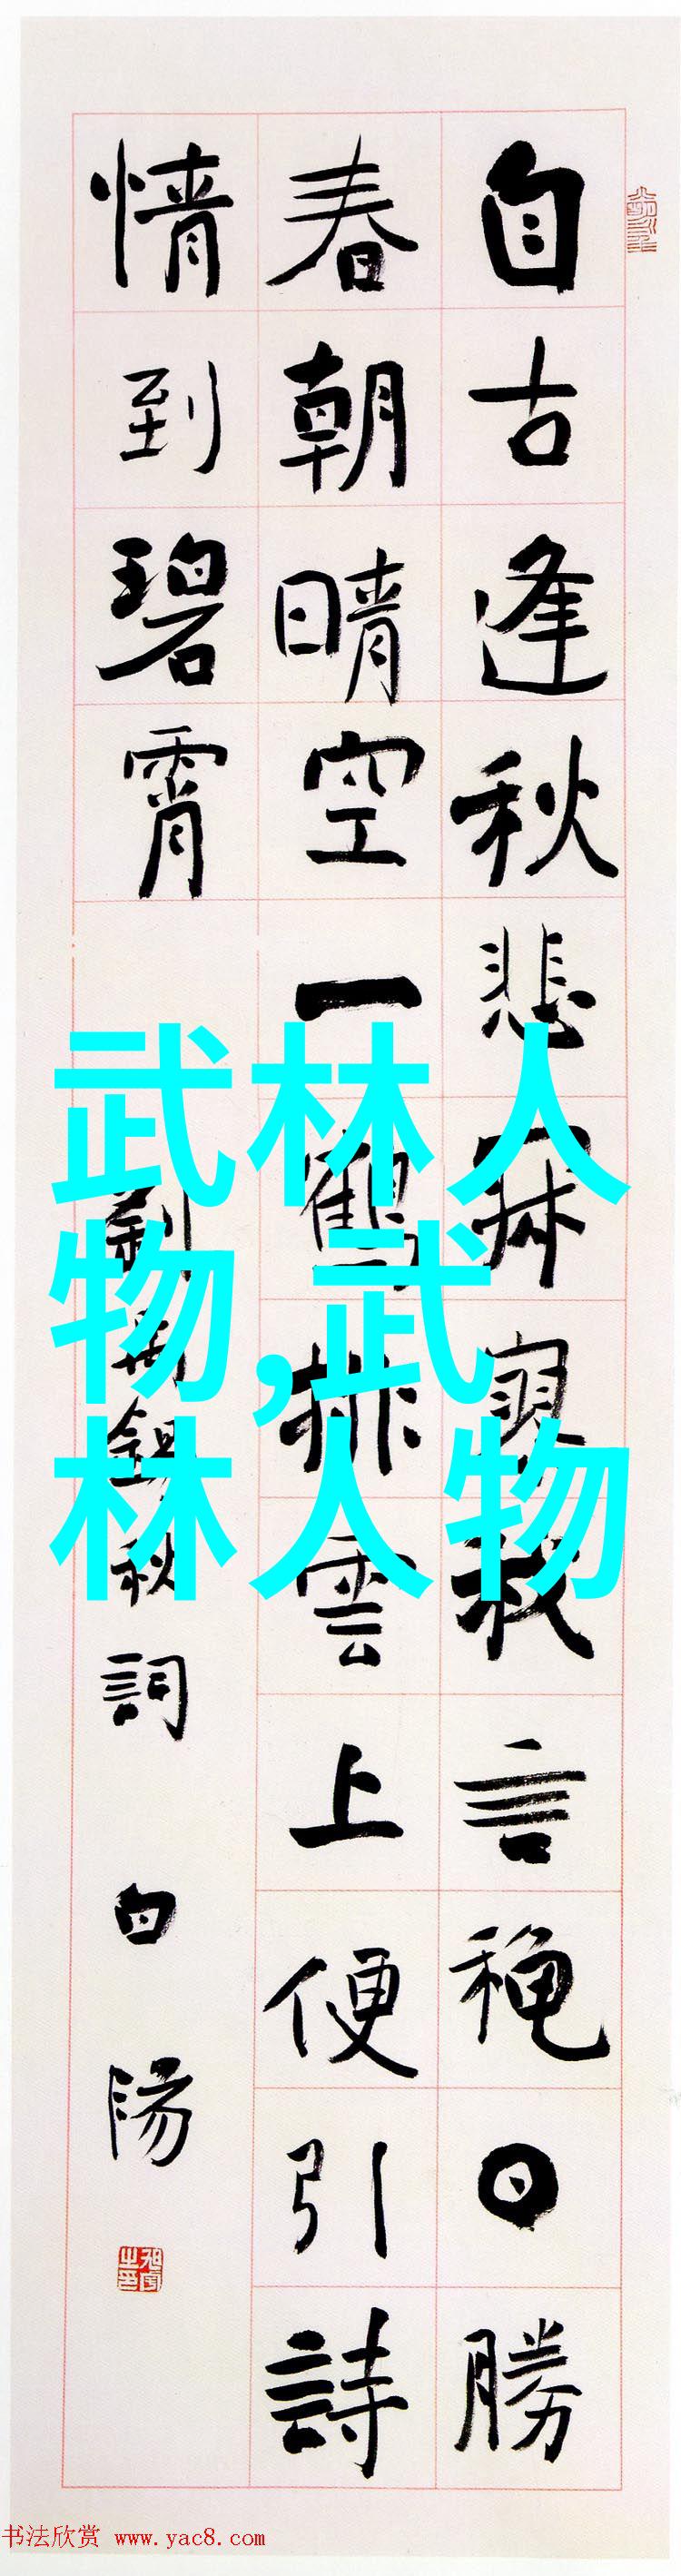 自古逢秋悲寂寥我言穐日勝
春朝晴空一鶴排雲上便引詩
情到碧霄
劉禹錫秋詞 白陽
武林人
物,武
林人物
书法欣赏 www.yac8.com